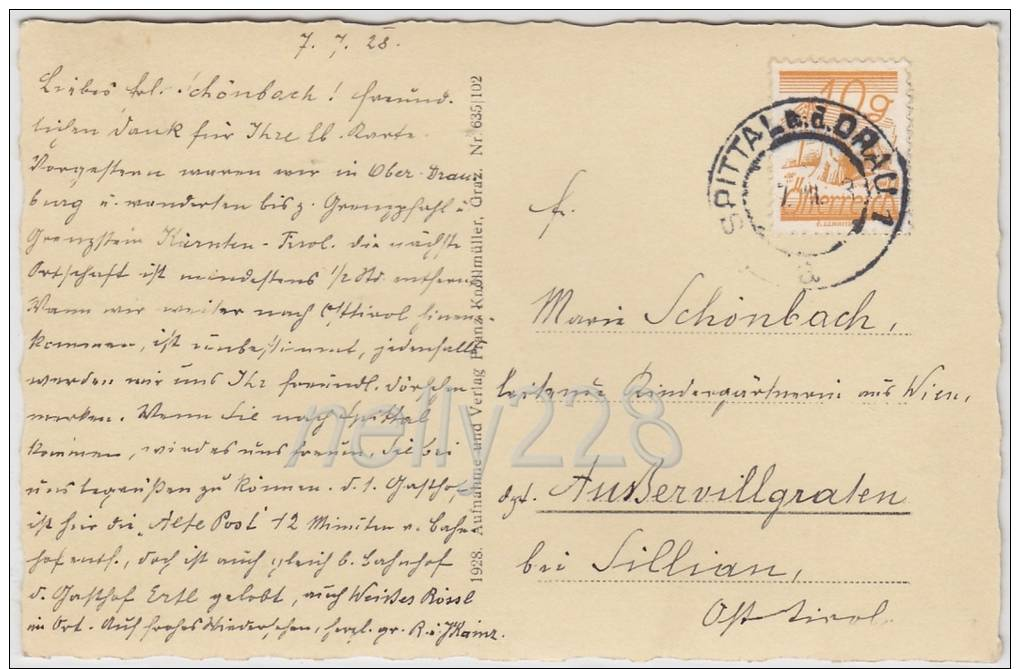 7. 7. 28.
Liebes Frl. Schönbach! Freund-
lichen Dank für Ihre lb. Karte.
Vorgestern waren wir in Ober-Drau-
burg u. wanderten bis z. Grenzpfahl u.
Grenzstein Kärnten-Tirol. die nächste
Ortschaft ist mindestens 1/2 Std. entfernt.
Wann wir weiter nach Osttirol hinein-
kommen, ist unbestimmt, jedenfalls
werden wir uns Ihr freundl. Dörfchen
merken. Wenn Sie nach Spittal
kommen, wird es uns freuen, Sie bei
uns begrüßen zu können. d. 1. Gasthof
ist hier die "Alte Post" 12 Minuten v. Bahn-
hof entf., doch ist auch gleich b. Bahnhof
d. Gasthof Ertl gelobt, auch Weißes Rössl
im Ort. Auf frohes Wiedersehen, herzl. gr. R. u. J. Kainz.
1928. Aufnahme und Verlag Franz Knollmüller, Graz. Nr. 635|102
10g
Österreich
SPITTAL a. d. DRAU 1
Fr.
Marie Schönbach,
Leitende Kindergärtnerin aus Wien,
dzt. Außervillgraten
bei Sillian,
Ost tirol.
nelly228